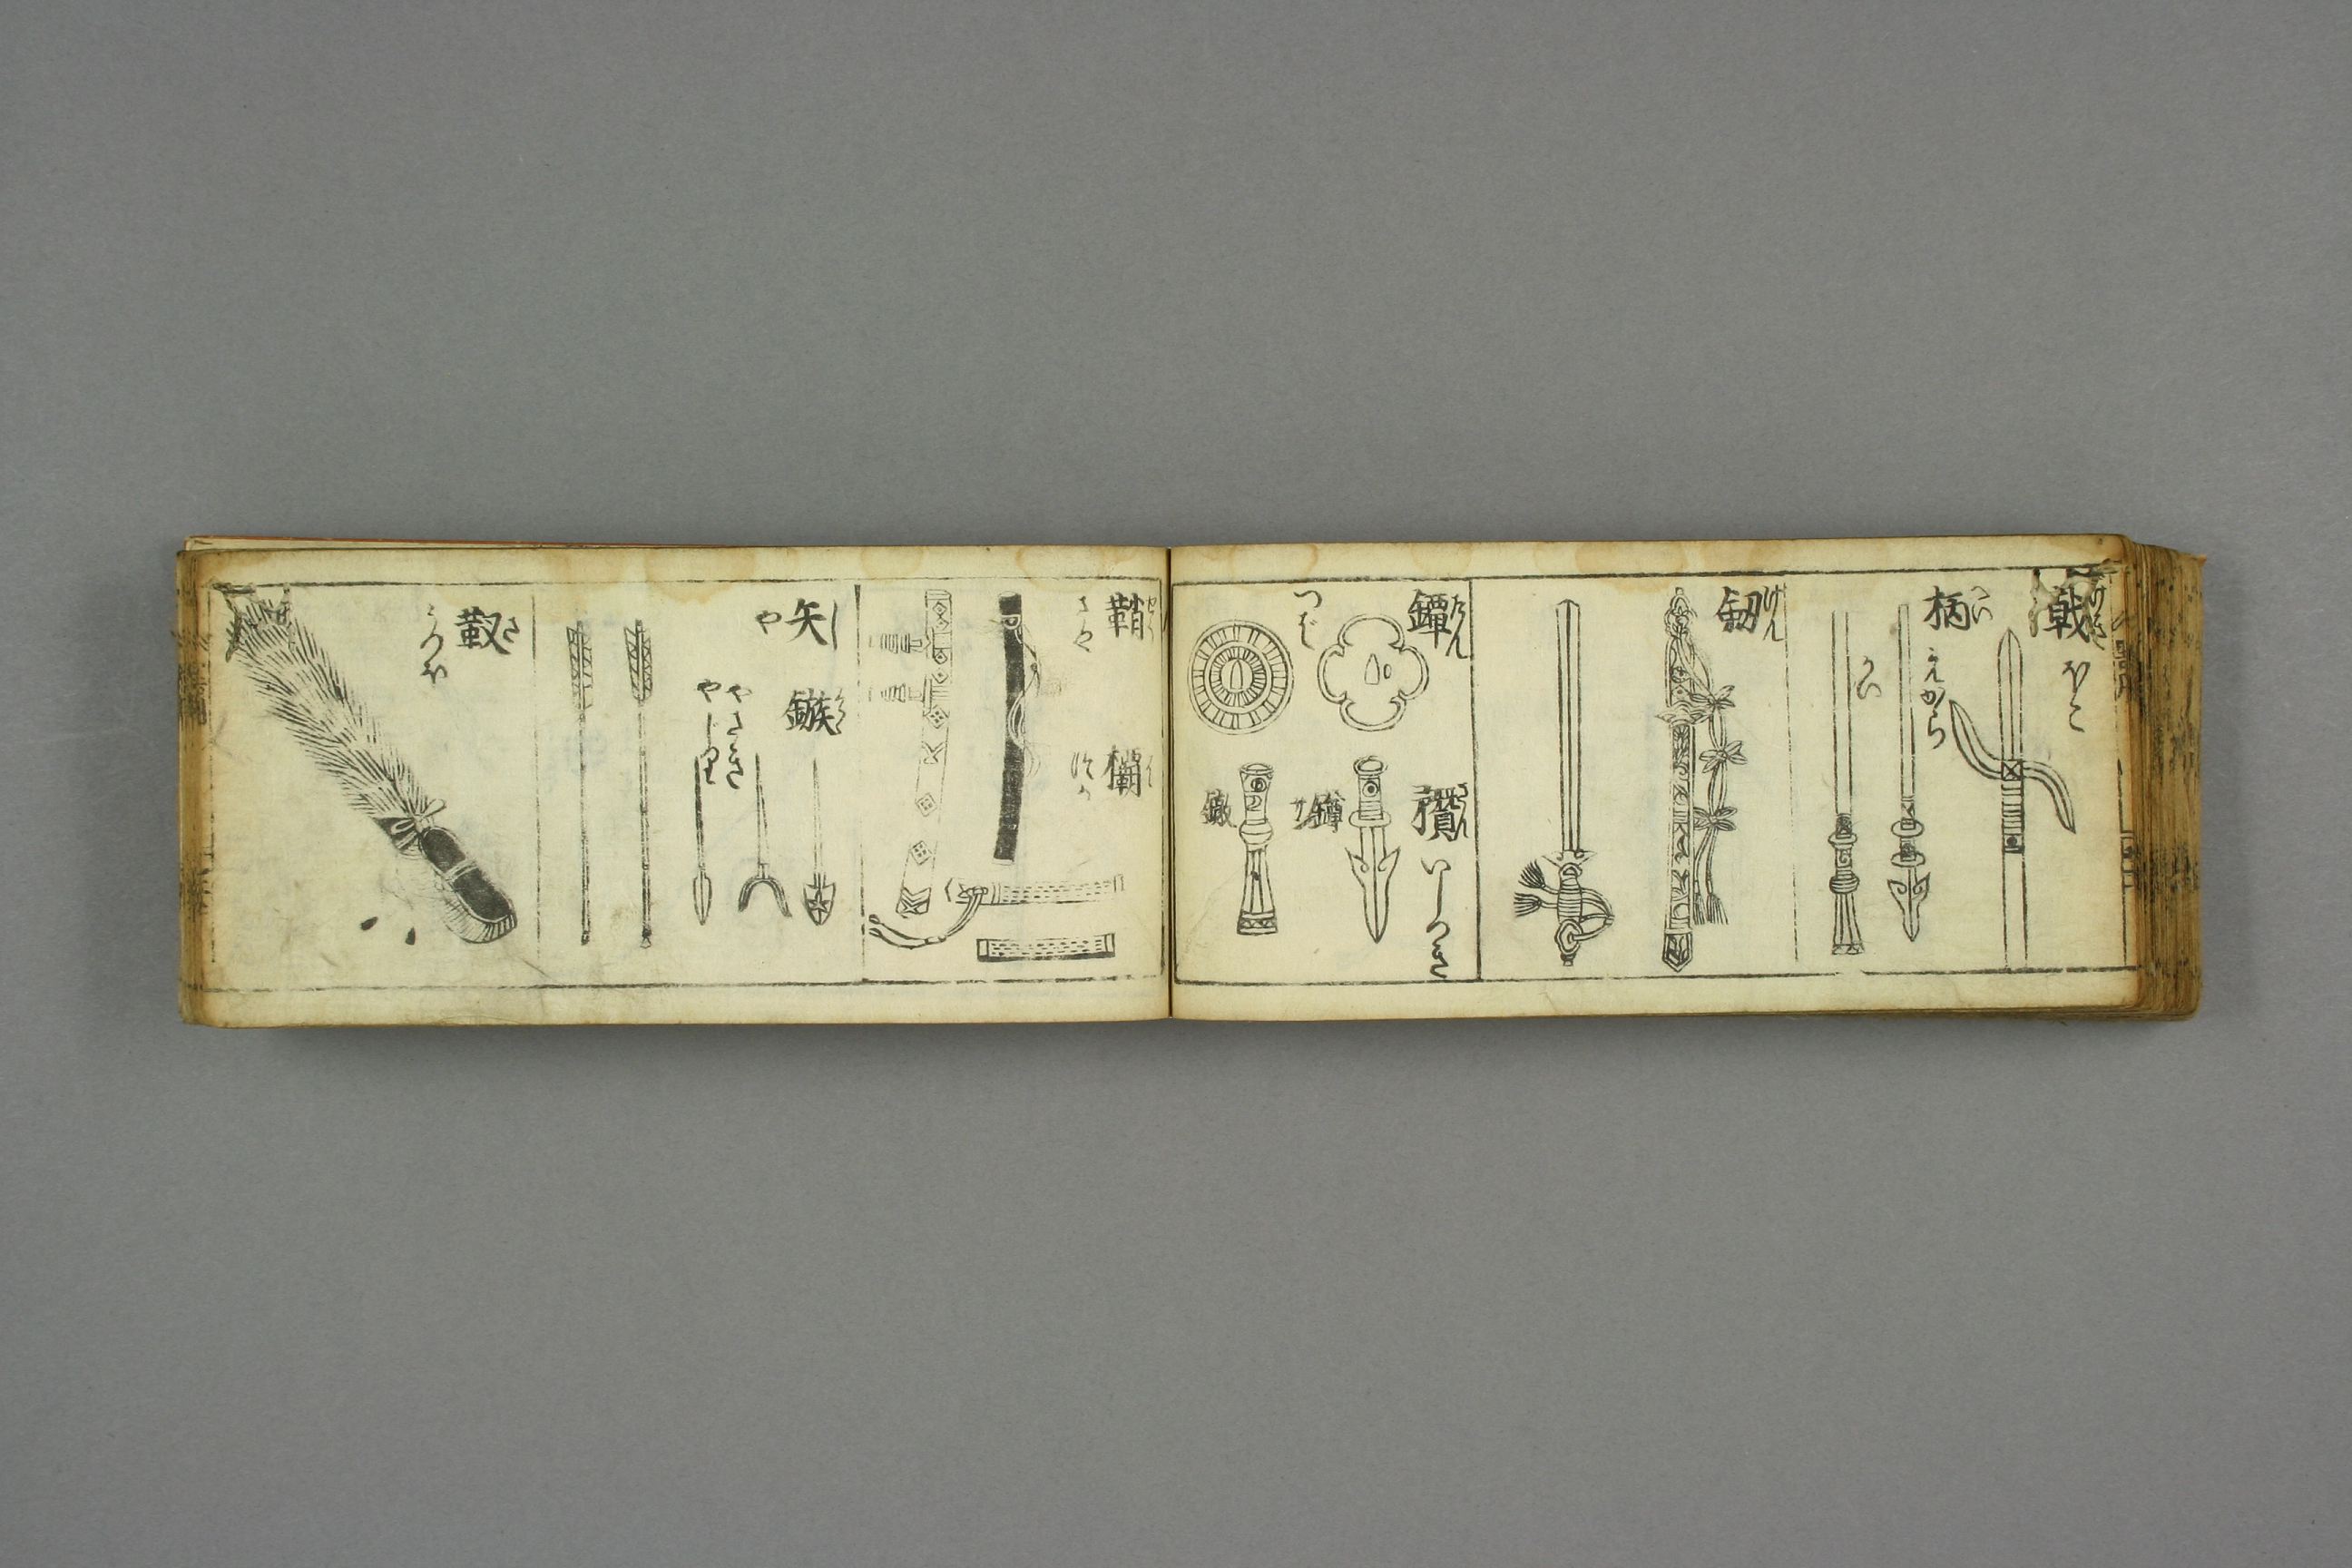 戟 げき
ほこ
柄 へい
えから
つい
劔 けん
鐔 たん
つば
穳 さん
いしつき
鐏
鐓
鞘 せう
さや
欛 は
つか
矢 し
や
鏃 ぞく
やさき
やじり
靫 さ
うつぼ